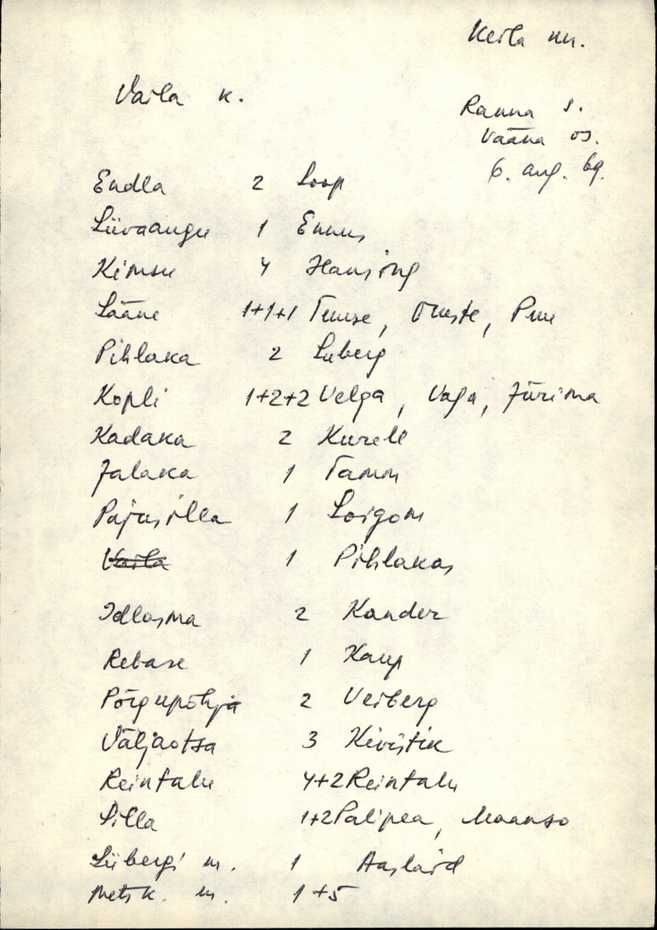 Keila mn.
Vaila k.
Ranna s.
Vääna os.
6. aug. 69.
Endla 2 Loop
Liivaaugu 1 Ennus
Kimsu 4 Hansing
Lääne 1+1+1 Tuuse, Oueste, Puu
Pihlaka 2 Liiberg
Kopli 1+2+2 Velga, Vaga, Jürima
Kadaka 2 Kurell
Jalaka 1 Tamm
Pajusilla 1 Loigom
Vaila 1 Pihlakas
2 Kander
Rebase 1 Kaup
Põrgupõhja 2 Veiberg
Väljaotsa 3 Kivistik
Reintalu 4+2 Reintalu
Silla 1+2 Palipea, Maanso
Liibergi m. 1
Metsk. m. 1+5